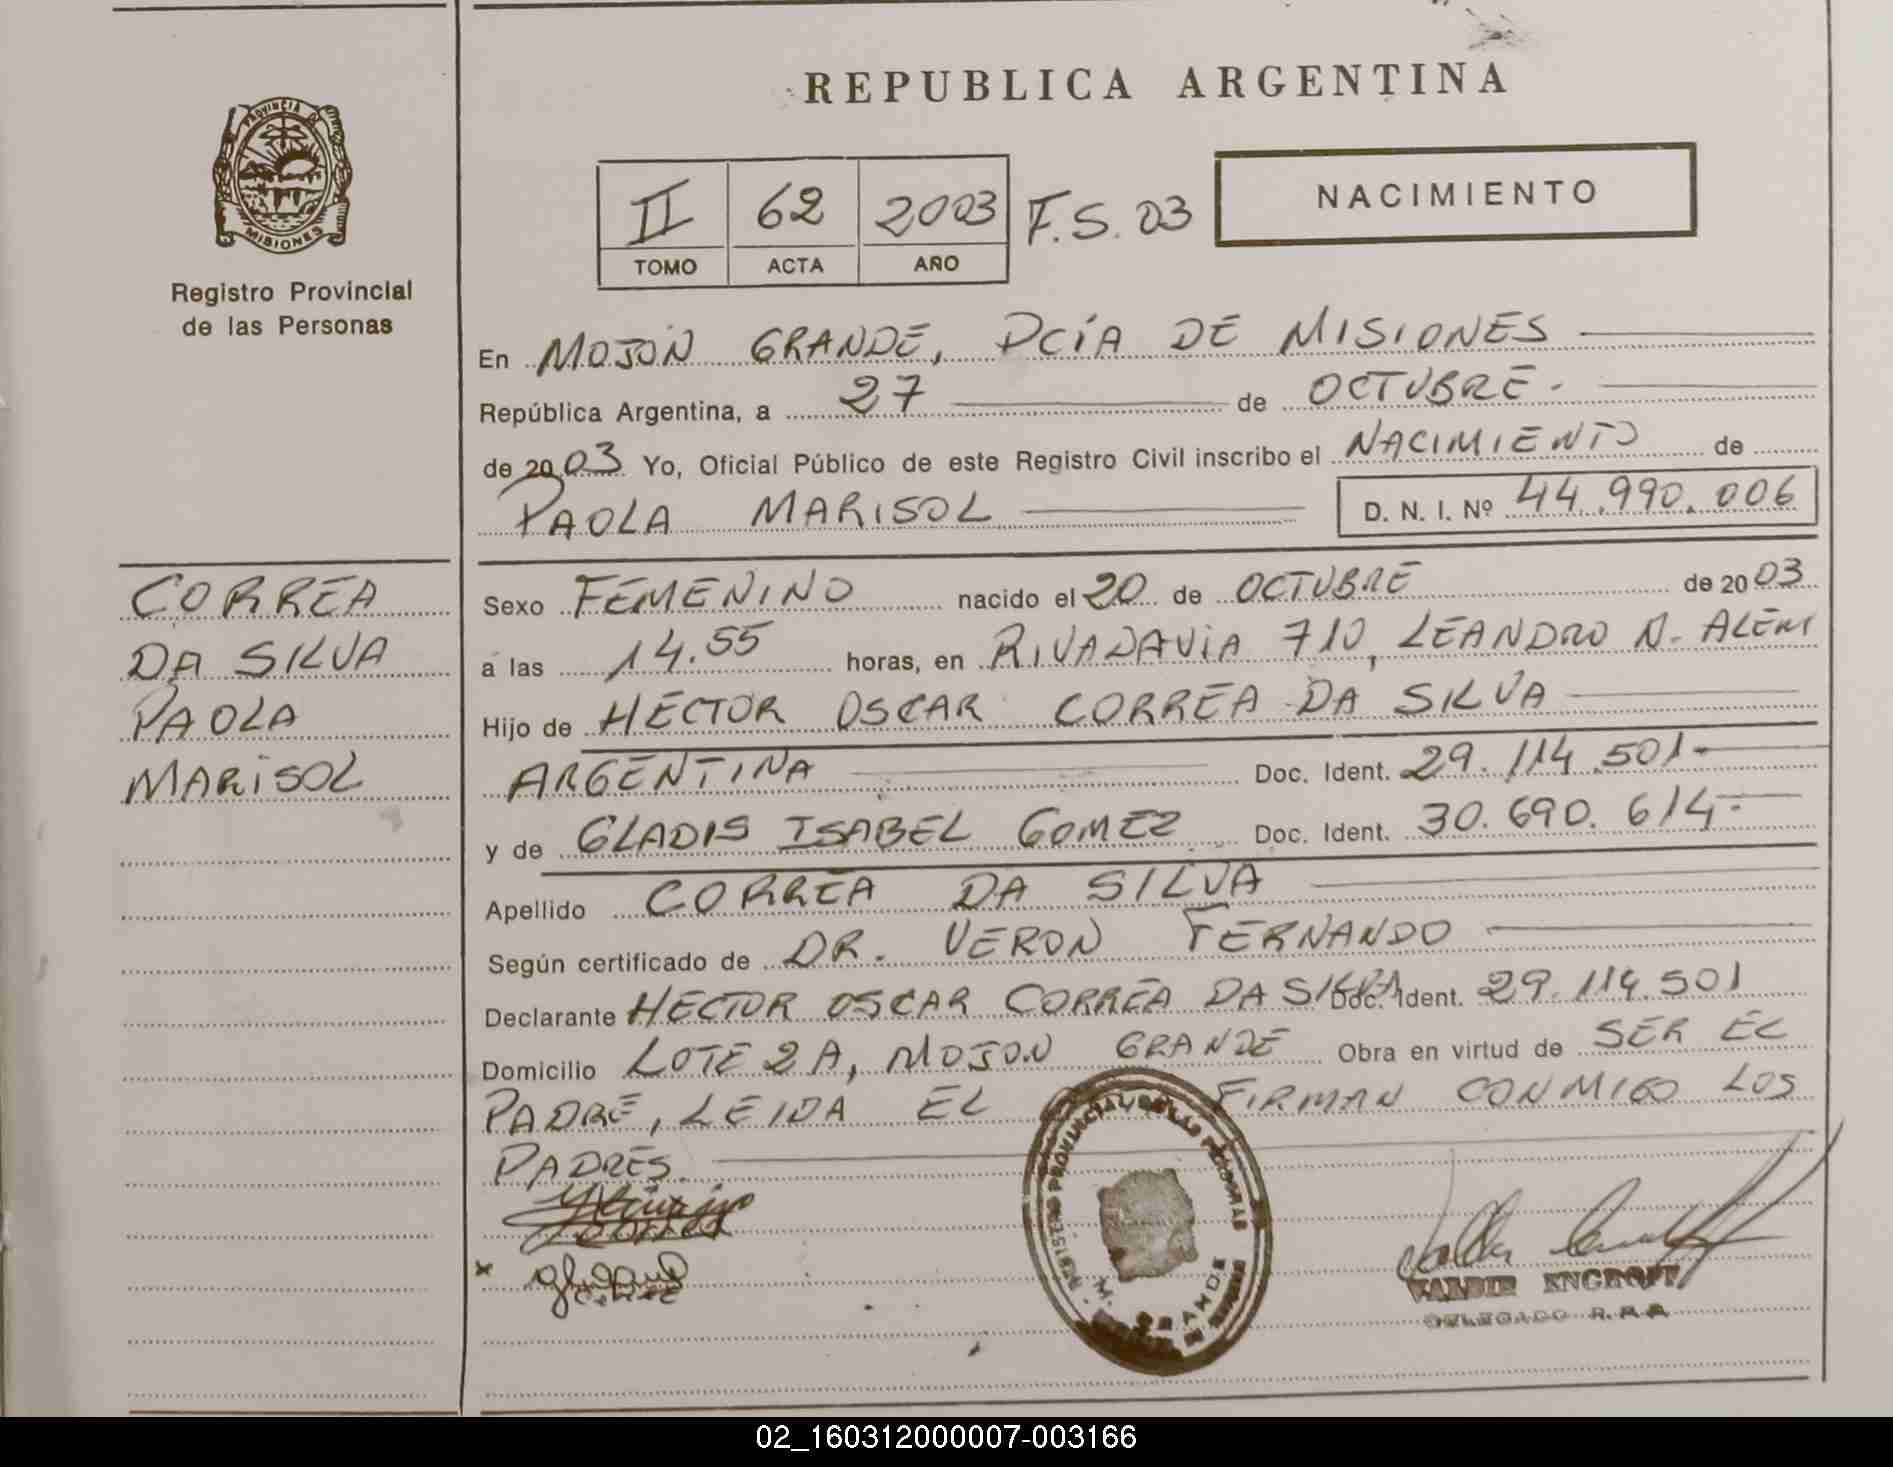 REPUBLICA ARGENTINA
PROVINCIA DE
MISIONES
Registro Provincial
de las Personas
II 62 2003 F.S. 03
TOMO ACTA AÑO
NACIMIENTO
En MOJON GRANDE, PCÍA DE MISIONES
República Argentina, a 27 de OCTUBRE.
de 2003 Yo, Oficial Público de este Registro Civil inscribo el NACIMIENTO de
PAOLA MARISOL D. N. I. Nº 44.990.006
CORREA
DA SILVA
PAOLA
MARISOL
Sexo FEMENINO nacido el 20 de OCTUBRE de 2003
a las 14.55 horas, en RIVADAVIA 710, LEANDRO N. ALEM
Hijo de HECTOR OSCAR CORREA DA SILVA
ARGENTINA Doc. Ident. 29.114.501-
y de GLADIS ISABEL GOMEZ Doc. Ident. 30.690.614-
Apellido CORREA DA SILVA
Según certificado de DR. VERON FERNANDO
Declarante HECTOR OSCAR CORREA DA SILVA Doc. Ident. 29.114.501
Domicilio LOTE 2A, MOJON GRANDE Obra en virtud de SER EL
PADRE, LEIDA EL FIRMAN CONMIGO LOS
PADRES.
REGISTRO PROVINCIAL DE LAS PERSONAS
M. GRANDE
DELEGADO R.P.P.
02_160312000007-003166